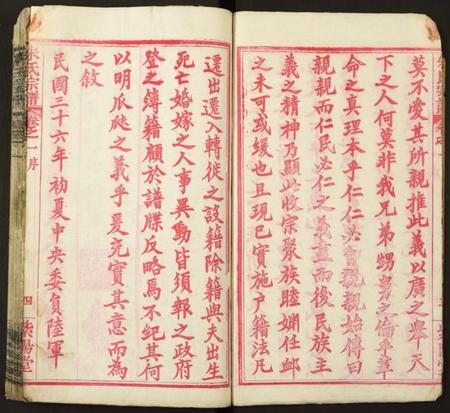 莫不愛其所親推此義以廣之舉天
下之人何莫非我兄弟甥舅之倫乎革
命之真理本乎仁仁必自親親始傳曰
親親而仁民必仁之義盡而後民族主
義之精神乃顯此收宗聚族睦婣任卹
之未可或緩也且現已實施戶籍法凡
遷出遷入轉徙之設籍除籍與夫出生
死亡婚嫁之人事異動皆須報之政府
登之簿籍顧於譜牒反略焉不紀其何
以明瓜瓞之義乎爰充實其意而為
之敘
民國三十六年初夏中央委員陸軍
朱氏宗譜 卷之一 序
四 紫陽堂